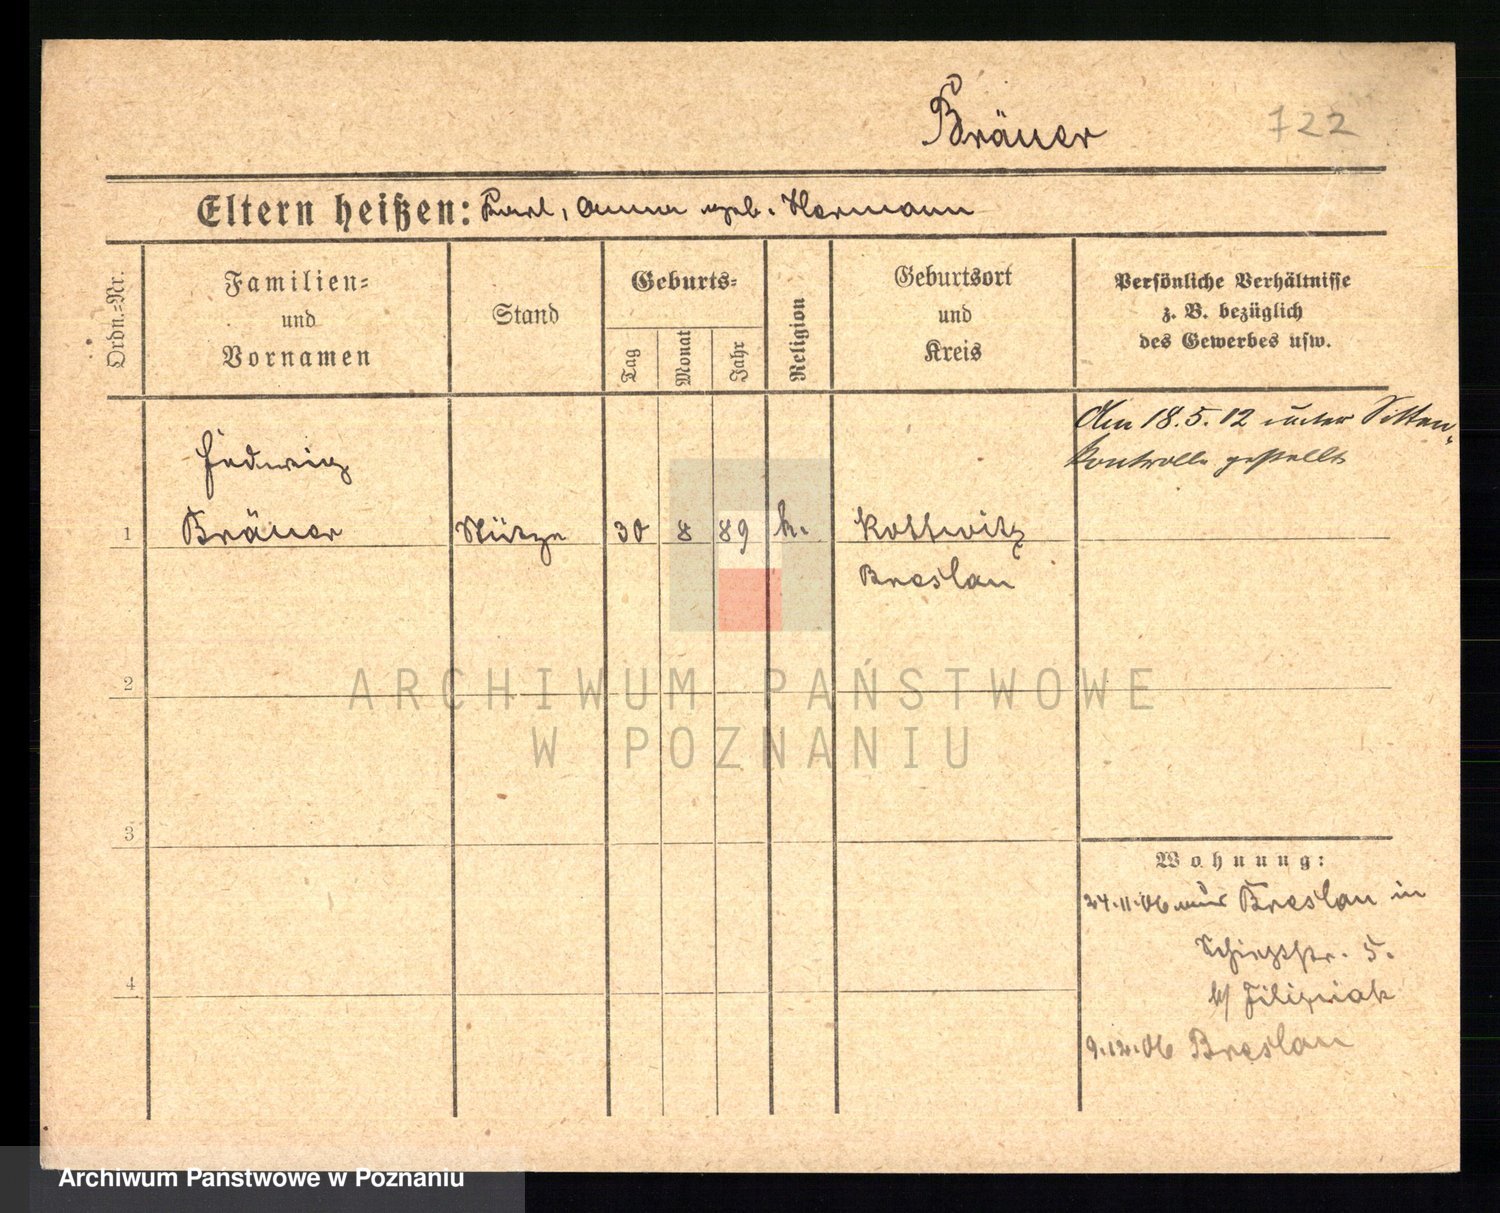 Bräuer 722
Eltern heißen: Karl, Anna geb. Hermann
Ordn.=Nr.
Familien=
und
Vornamen
Stand
Geburts=
Tag
Monat
Jahr
Religion
Geburtsort
und
Kreis
Persönliche Verhältnisse
z. B. bezüglich
des Gewerbes usw.
Am 18.5.12 unter Sitten-
kontrolle gestellt
Hedwig
1 Bräuer Stütze 30 8 89 k. Kottwitz
Breslau
2
3
4
Wohnung:
24.11.06 aus Breslau in
Schießstr. 5.
b/ Filipiak
9.12.06 Breslau
ARCHIWUM PAŃSTWOWE
W POZNANIU
Archiwum Państwowe w Poznaniu